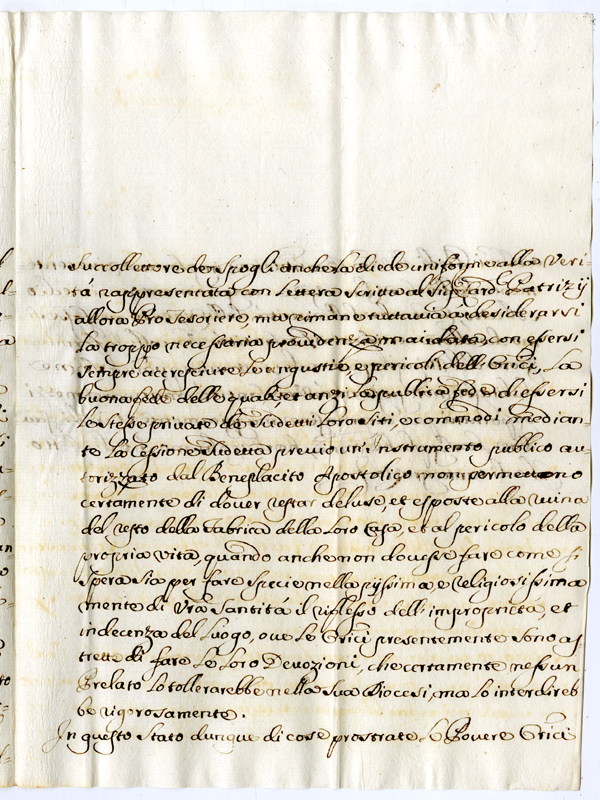 Succollettore de Spogli anche la diede uniforme alla Veri-
tá rappresentata con Lettera Scritta al Sig.r Card. Patrizÿ
allora Pro Tesoriere, ma rimane tuttavia a desiderarsi
la troppo necessaria providenza mai data, con essersi
sempre accresciute le angustie, e pericoli dell' Orici, La
buona fede delle quali, et anzi la publica fede di essersi
le stesse private de Sudetti Loro Siti, e commodi median-
te la Cessione Sudetta previo un' Instrumento publico au-
torizzato dal Beneplacito Apostolico non permettono
certamente di dover restar deluse, et esposte alla ruina
del resto della Fabrica della Loro Casa, et al pericolo della
propria vita, quando anche non dovesse fare come si
spera sia per fare specie nella pijssima e religiosissima
mente di Vrã Santitá il riflesso dell' improprietá, et
indecenza del Luogo, ove le Orici presentemente sono as
trette di fare le Loro Devozioni, che certamente nessun
Prelato lo tollerarebbe nella Sua Diocesi, ma lo interdireb
be rigorosamente.
In questo Stato dunque di cose prostrate le Povere Orici